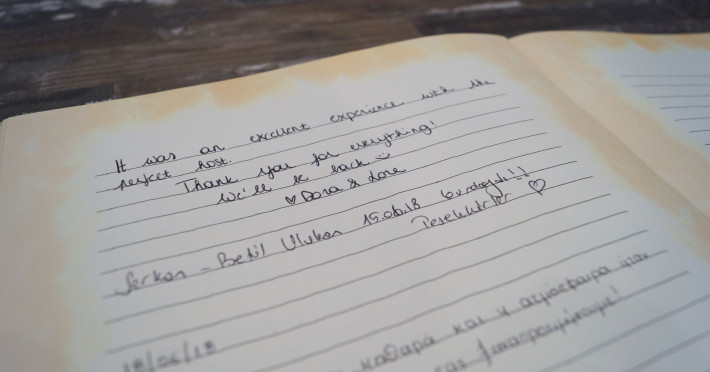 It was an excellent experience with the
perfect host.
Thank you for everything!
We'll be back
Dona & Lore
Serkan - Betül Ulukan 15.06.18 burdaydı!!
Teşekkürler
18/06/18
καθαρά και η ατμόσφαιρα ήταν
σας ξαναπροτιμήσουμε!